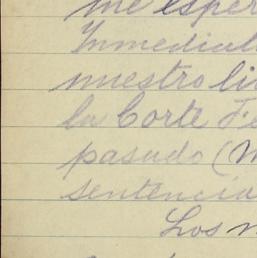 me esper
Inmediat
nuestro li
la Corte Fe
pasado (M
sentencia
Los